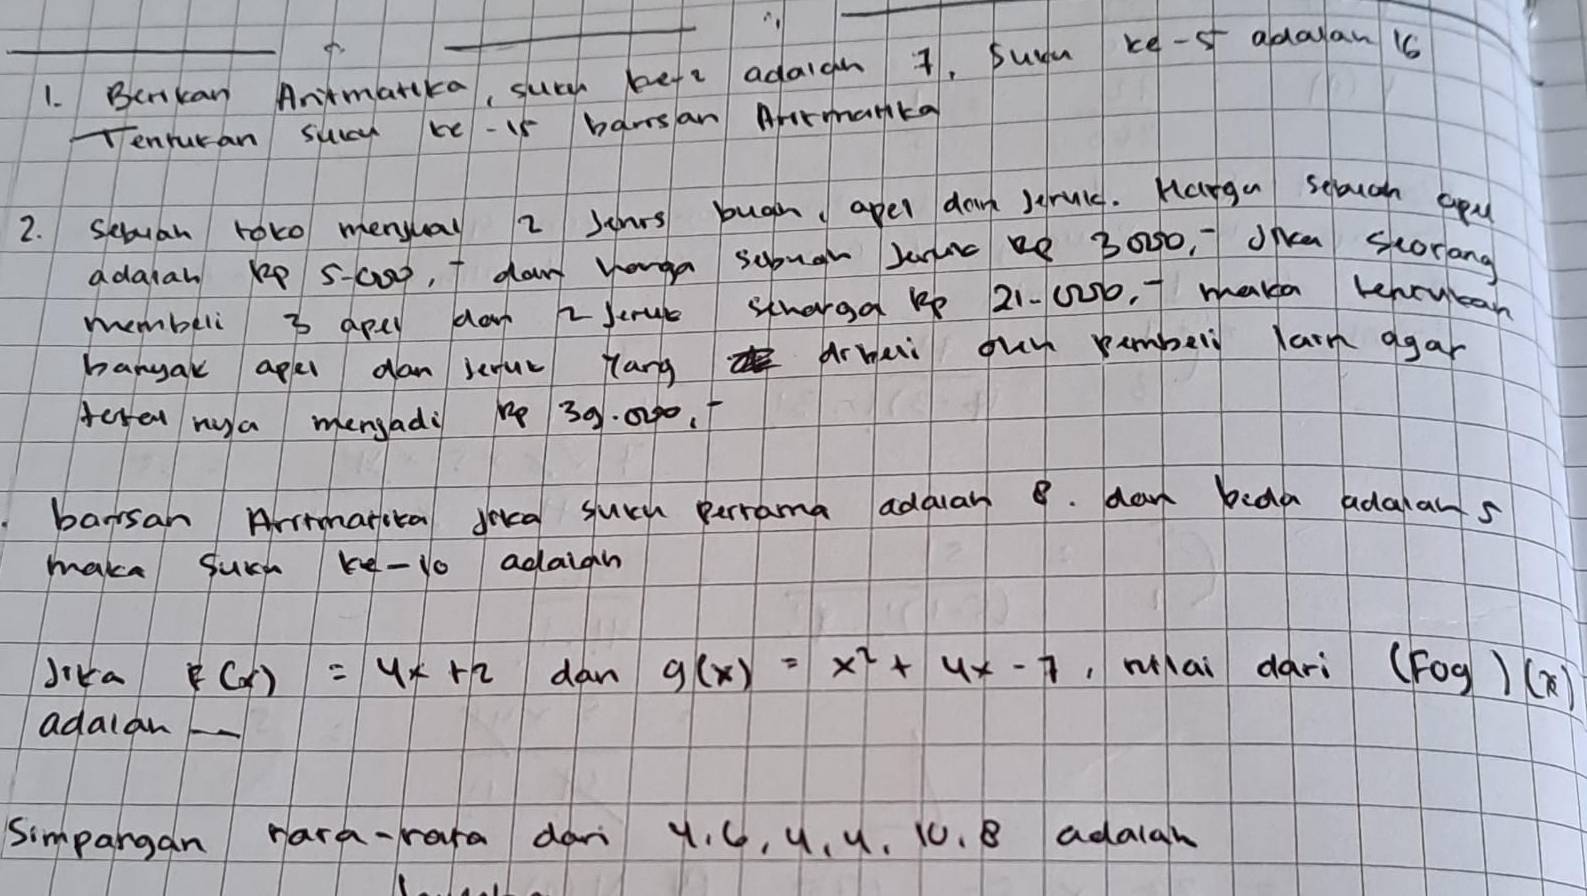 1. Berikan Aritmatika, suku ke-2 adalah 7, suku ke-5 adalah 16
Tentukan suku ke-15 barisan Aritmatika
2. sebuah toko menjual 2 Jenis buah, apel dan Jeruk. Harga sebuah apel
adalah Rp 5.000,- dan harga sebuah Jeruk Rp 3000,- Jika seorang
membeli 3 apel dan 2 Jeruk seharga Rp 21.000,- maka tentukan
banyak apel dan Jeruk Yang dibeli oleh pembeli lain agar
total nya menjadi Rp 39.000,-
barisan Aritmatika jika suku pertama adalah 8. dan beda adalah 5
maka suku ke-10 adalah
Jika F(x) = 4x +2 dan g(x) = x² + 4x - 7, nilai dari (Fog)(x)
adalah —
Simpangan rata-rata dari 4,6,4,4,10,8 adalah